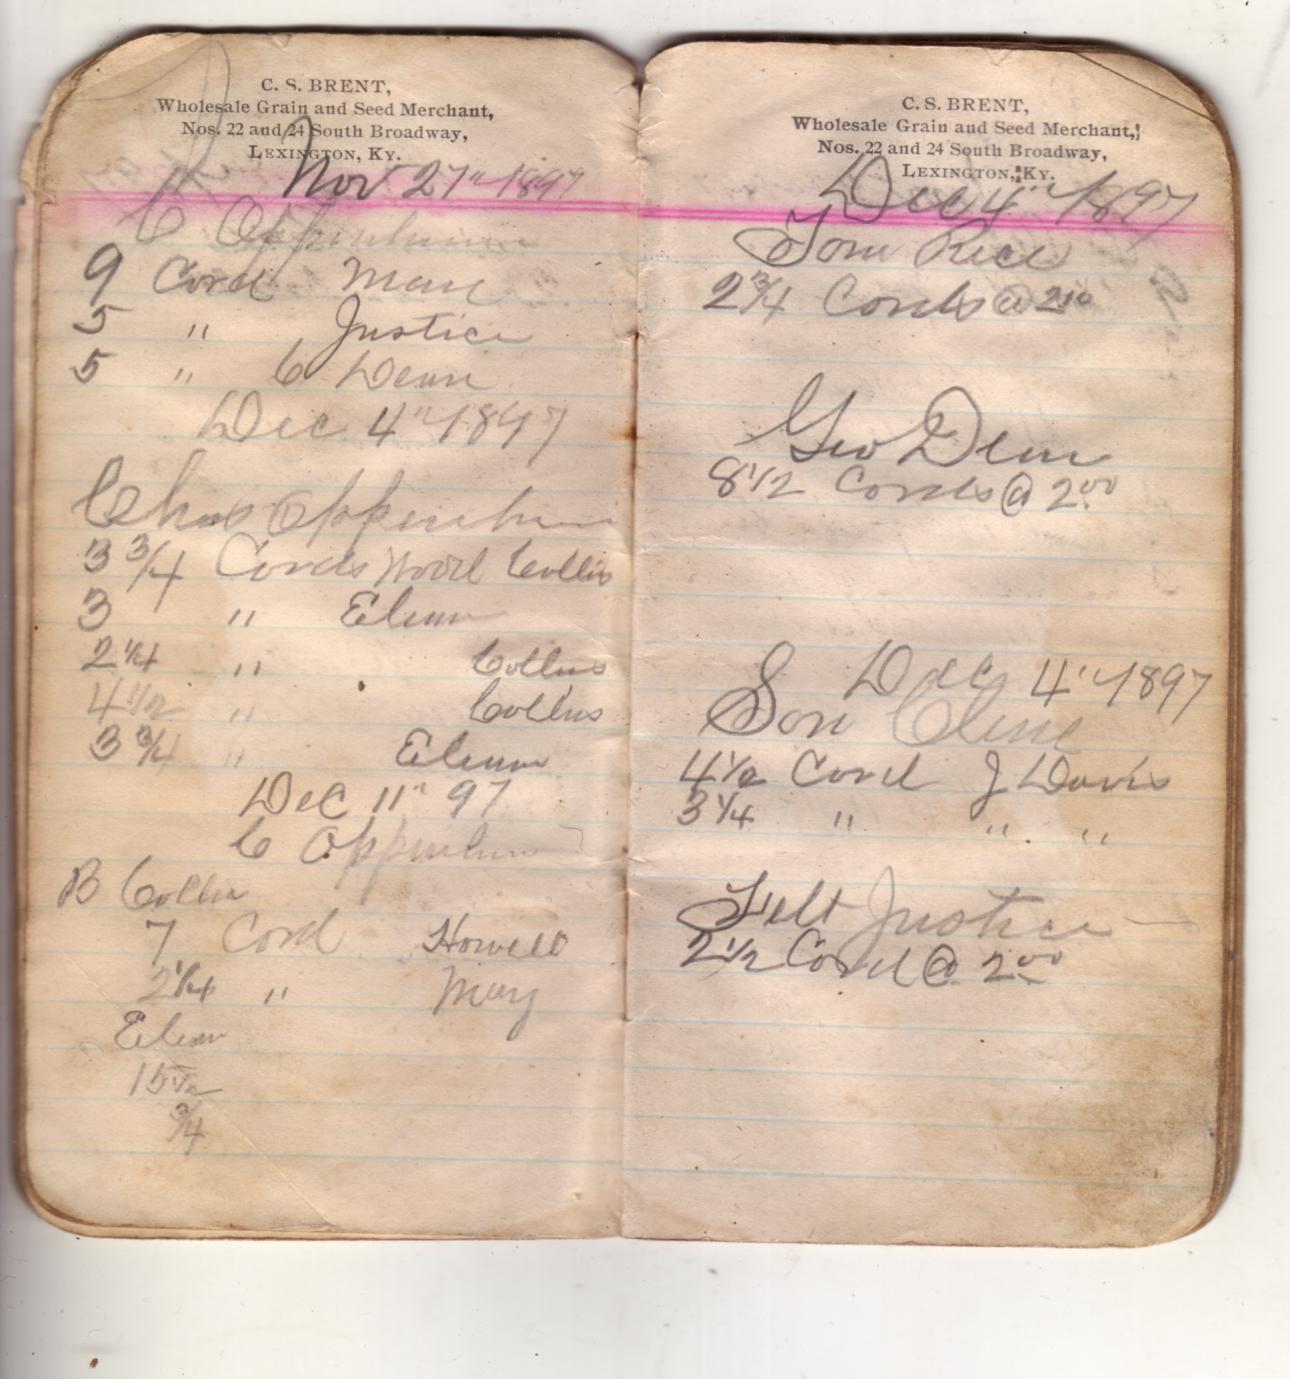 C. S. BRENT,
Wholesale Grain and Seed Merchant,
Nos. 22 and 24 South Broadway,
LEXINGTON, KY.
Nov 27" 1897
C Oppenheim
9 Cord May
5 " Justice
5 " C Dean
Dec 4" 1897
Chas Oppenheim
3 3/4 Cords Wood Collis
3 " Elam
2 1/4 " Collins
4 1/2 " Collins
3 3/4 " Elam
Dec 11" 97
C Oppenheim
B Collin
7 Cord Howell
2 1/4 " May
Elam
15 1/2
3/4
C. S. BRENT,
Wholesale Grain and Seed Merchant,
Nos. 22 and 24 South Broadway,
LEXINGTON, KY.
Dec 4" 1897
Tom Rice
2 3/4 Cords @ 2 10
Geo Dean
8 1/2 Cords @ 2.00
Dec 4" 1897
Son Cline
4 1/2 Cord J Davis
3 1/4 " " "
Felt Justice
2 1/2 Cord @ 2.00